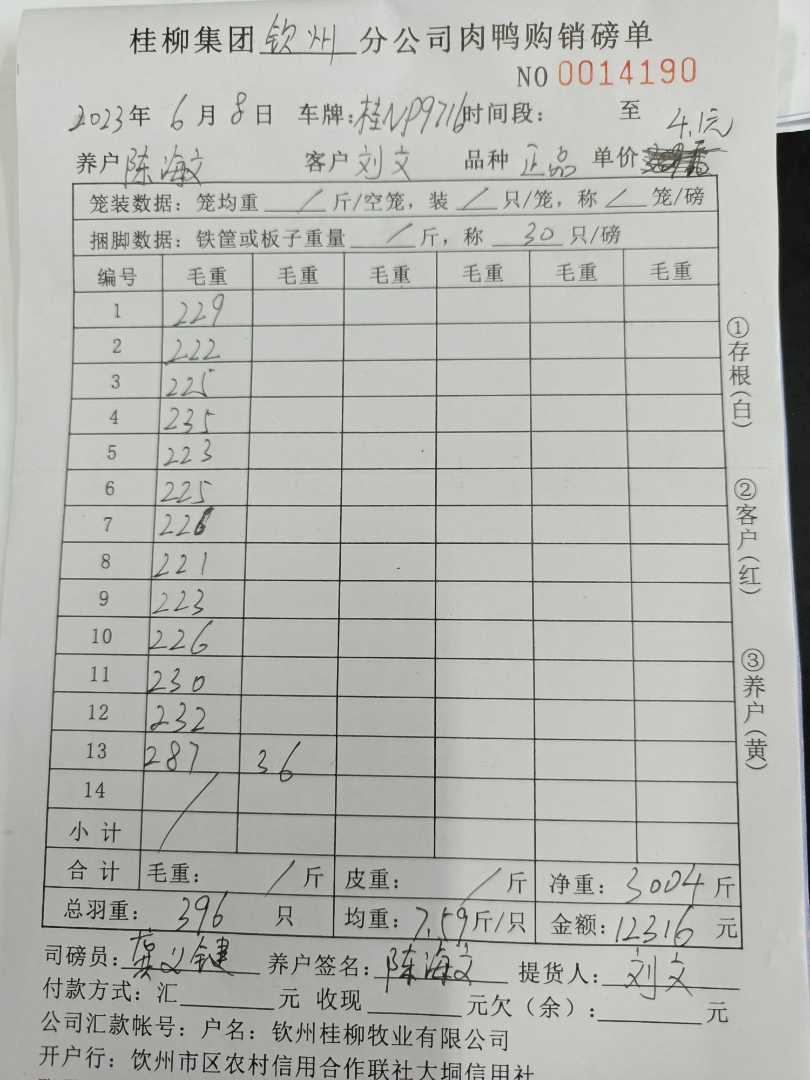 桂柳集团钦州分公司肉鸭购销磅单
NO 0014190
2023年6月8日 车牌:桂NP9716时间段: 至
4.1元
养户陈海文 客户刘文 品种 正品 单价
笼装数据:笼均重 / 斤/空笼,装 / 只/笼,称 / 笼/磅
捆脚数据:铁筐或板子重量 / 斤,称 30 只/磅
编号 毛重 毛重 毛重 毛重 毛重 毛重
1 229
2 222
3 225
4 235
5 223
6 225
7 226
8 221
9 223
10 226
11 230
12 232
13 287 36
14 /
小计
合计 毛重: / 斤 皮重: / 斤 净重:3004斤
总羽重: 396 只 均重:7.59斤/只 金额:12316元
司磅员:莫义键 养户签名:陈海文 提货人:刘文
付款方式:汇 元 收现 元欠(余): 元
公司汇款帐号:户名:钦州桂柳牧业有限公司
开户行:钦州市区农村信用合作联社大垌信用社
①存根(白)
②客户(红)
③养户(黄)